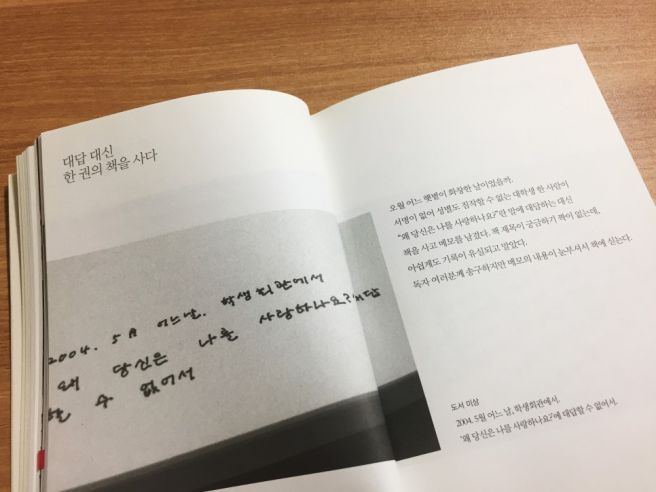 대답 대신
한 권의 책을 사다
2004. 5월 어느날. 학생회관에서
왜 당신은 나를 사랑하나요?"에 답
할 수 없어서
오월 어느 햇볕이 화창한 날이었을까.
서명이 없어 성별도 짐작할 수 없는 대학생 한 사람이
"왜 당신은 나를 사랑하나요?"란 말에 대답하는 대신
책을 사고 메모를 남겼다. 책 제목이 궁금하기 짝이 없는데,
아쉽게도 기록이 유실되고 말았다.
독자 여러분께 송구하지만 메모의 내용이 눈부셔서 책에 싣는다.
도서 미상
2004. 5월 어느 날, 학생회관에서.
'왜 당신은 나를 사랑하나요?'에 대답할 수 없어서.